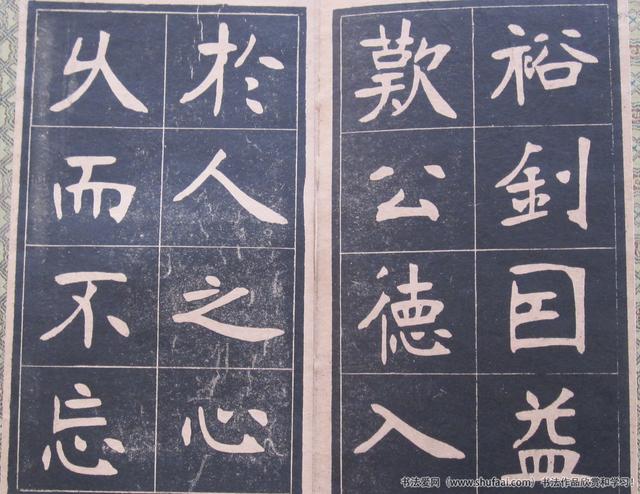 裕釗因益
歎公德入
於人之心
久而不忘
书法爱网（www.shufaai.com）书法作品欣赏和学习！